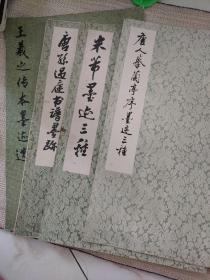 王羲之传本墨迹选
唐孙过庭书谱墨迹
米芾墨迹三种
唐人摹兰亭序墨迹三种